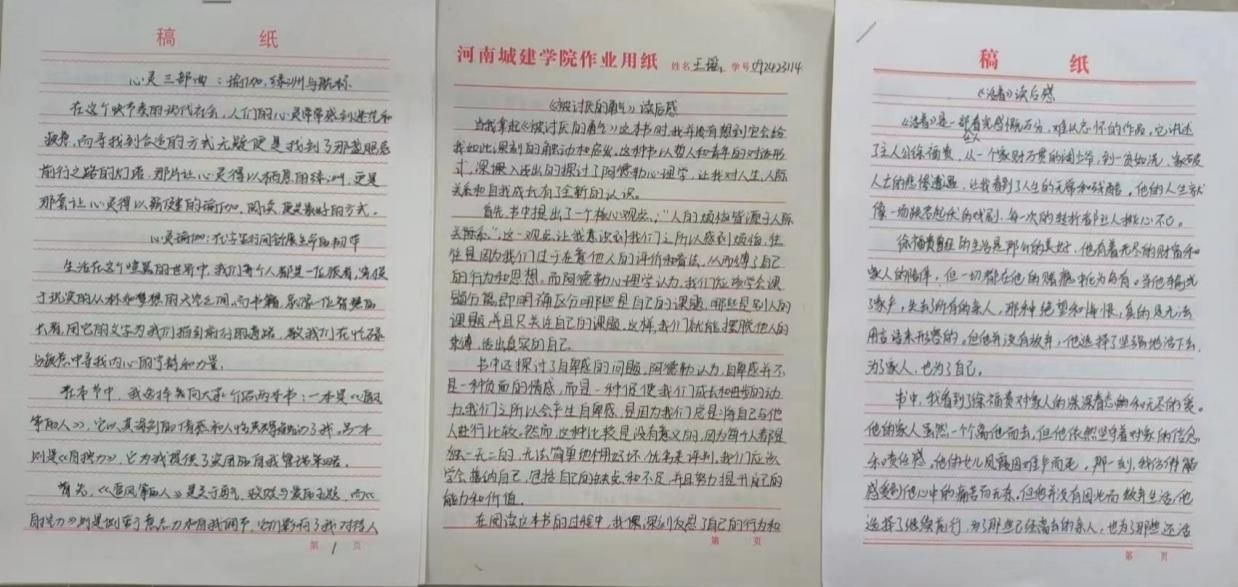 稿 纸
心灵三部曲:瑜伽,绿洲与航标
在这个快节奏的现代社会,人们的心灵常常感到迷茫和
疲惫,而寻找到合适的方式无疑便是找到了那盏照亮
前行之路的灯塔,那片让心灵得以栖息的绿洲,更是
那套让心灵得以舒缓的瑜伽。阅读,便是最好的方式。
心灵瑜伽:在字里行间舒展生命的韧带
生活在这个喧嚣的世界中,我们每个人都是一位旅者,穿梭
于现实的丛林和梦想的天空之间。而书籍,就像一位智慧的
长者,用它的文字为我们指引前行的道路,教我们在忙碌
与疲惫中寻找内心的宁静和力量。
在本节中,我选择着向大家介绍两本书:一本是《追风
筝的人》,它以其深刻的情感和人性光辉触动了我,另一本
则是《自控力》,它为我提供了实用的自我管理策略。
首先,《追风筝的人》是关于勇气、救赎与爱的主题,而《
自控力》则是侧重于意志力和自我调节,它们影响了我对待人
第 1 页
河南城建学院作业用纸 姓名 王 学号 092423114
《被讨厌的勇气》读后感
当我拿起《被讨厌的勇气》这本书时,我并没有想到它会给
我如此深刻的触动和启发。这种书以哲人和青年的对话形
式,深入浅出的探讨了阿德勒心理学,让我对人生、人际
关系和自我成长有了全新的认识。
首先,书中提出了一个核心观点:“人的烦恼皆源于人际
关系”。这一观点让我意识到我们之所以感到烦恼,往
往是因为我们过于在意他人的评价和看法,从而束缚了自己
的行为和思想,而阿德勒心理学认为,我们应该学会课
题分离,即明确区分哪些是自己的课题,哪些是别人的
课题,并且只关注自己的课题,这样,我们就能摆脱他人的
束缚,活出真实的自己。
书中还探讨了自卑感的问题,阿德勒认为,自卑感并不
是一种负面的情感,而是一种促使我们成长和进步的动
力,我们之所以会产生自卑感,是因为我们总是将自己与他
人进行比较。然而,这种比较是没有意义的,因为每个人都是
独一无二的,无法简单地用好坏、优劣来评判,我们应该
学会接纳自己,包括自己的缺点和不足,并且努力提升自己的
能力和价值。
在阅读这本书的过程中,我深深刻反思了自己的行为和
第 页
稿 纸
《活着》读后感
《活着》是一部看完感慨万分,难以忘怀的作品,它讲述
了主人公徐福贵,从一个家财万贯的阔少爷,到一贫如洗,家破
人亡的悲惨遭遇,让我看到了人生的无常和残酷。他的人生就
像一场跌宕起伏的戏剧,每一次的转折都让人揪心不已。
徐福贵曾经的生活是那么的美好,他有着无尽的财富和
家人的陪伴,但一切都在他的赌熬中化为乌有。当他输光
了家产,失去了所有的亲人,那种绝望和悔恨,真的是无法
用言语来形容的。但他并没有放弃,他选择了坚强地活下去,
为了家人,也为了自己。
书中,我看到了徐福贵对家人的深深眷恋和无尽的爱。
他的家人虽然一个个离他而去,但他依然坚守着对家的信念
和责任感,他的女儿凤霞因难产而死,那一刻,我仿佛能
感受到他心中的痛苦和无奈。但他并没有因此而放弃生活,他
选择了继续前行,为了那些已经离去的亲人,也为了那些还活
第 页